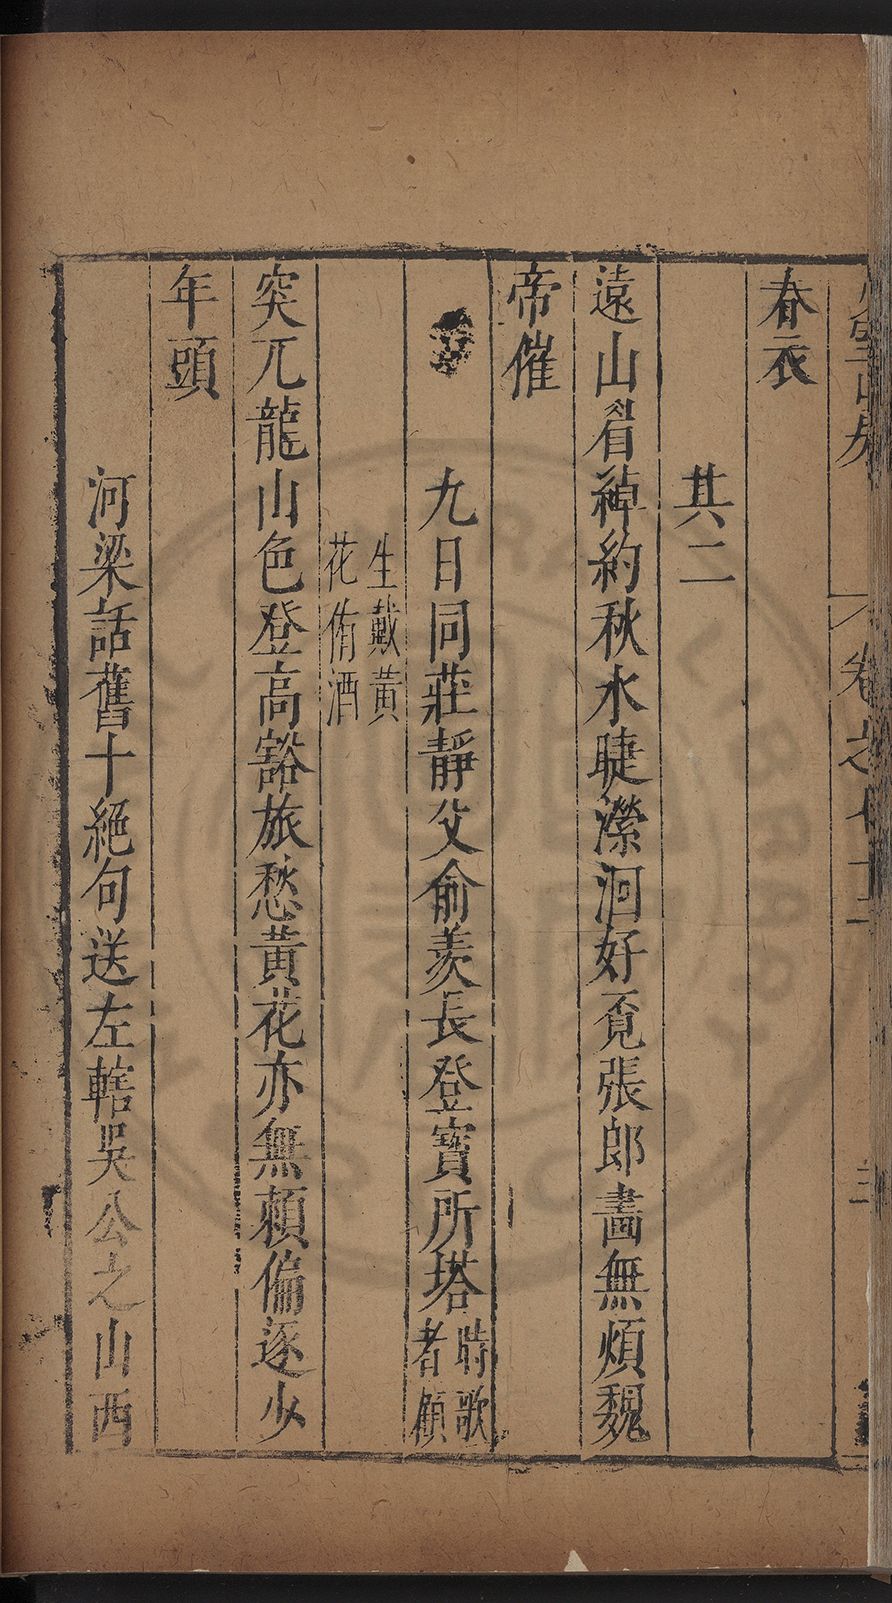 卷之七十二
春衣
其二
遠山眉綽約秋水睫濴洄好覓張郎畵無煩魏
帝催
九日同莊靜父俞羨長登寶所塔時歌者顧
生戴黃花侑酒
突兀龍山色登高豁旅愁黃花亦無賴偏逐少
年頭
河梁話舊十絕句送左轄吳公之山西